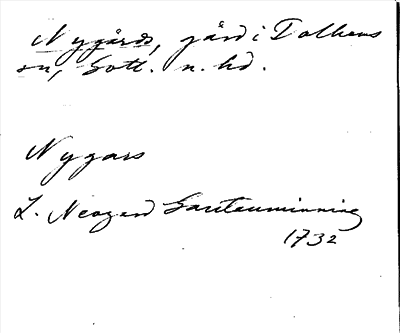 Nygårds, gård i Dalhems
sn, Gotl. n. hd.
Nygars
L. Neogard
1732